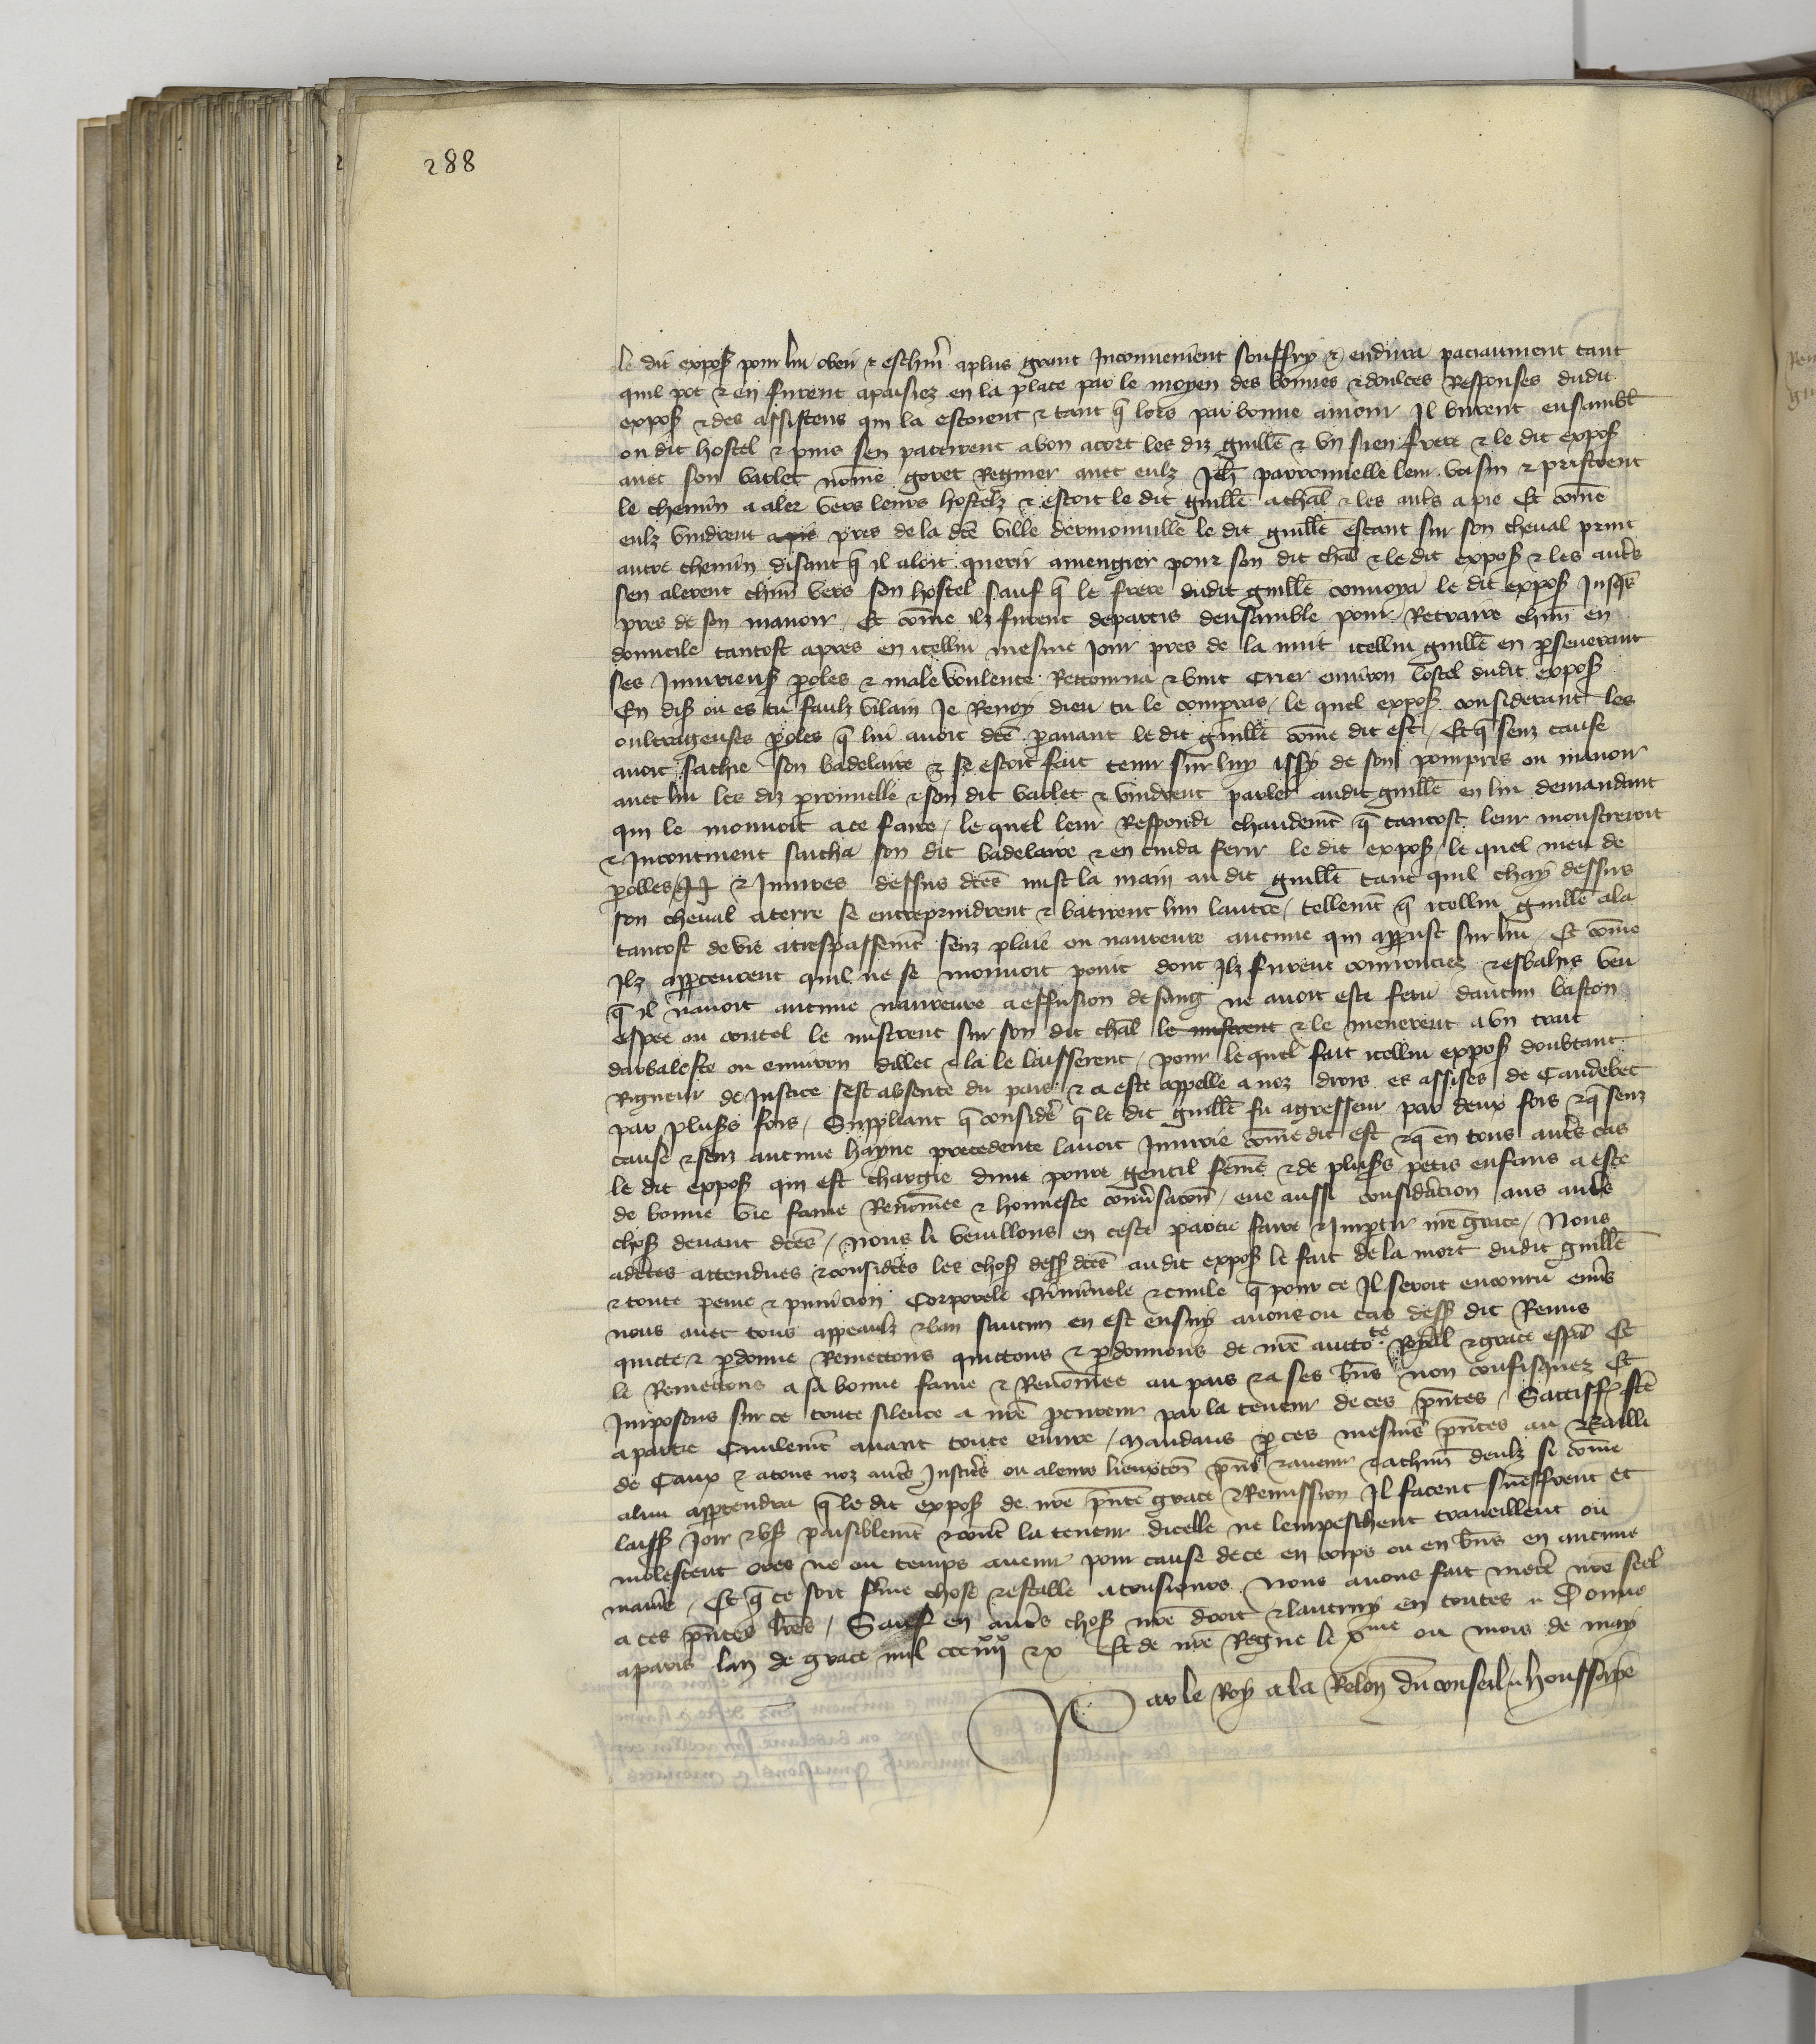 288
le dit expos pour lui obeir & eschiver a plus grant Inconvenient souffry & endura paciaument tant
quil pot & en furent apaisiez en la place par le moyen des bonnes & doulces Responses dudit
expos & des assistens qui la estoient & tant q̄ lors par bonne amour Il burent ensambl̄
ou dit hostel & puis sen partirent a bon acort les diz guillē & un sien frere & le dit expos
avec son varlet nom̄e goret Regnier avec eulz Jeh̄ parronnelle leur voisin & pristrent
le chemin a aler vers leurs hostelz & estoit le dit guillē a chāl & les aut̄s a pie Et com̄e
eulz vindrent apié pres de la dc̄e ville dermonville le dit guillē estant sur son cheval print
autre chemin disant q̄ il aloit querir amengier pour son dit chāl & le dit expos & les aut̄s
sen alerent ch̄un vers son hostel sauf q̄ le frere dudit guillē convoya le dit expos Jusq̄s
pres de son manoir Et com̄e ilz furent departis densamble pour Retraire ch̄un en
domicile tantost apres en icellui mesme jour pres de la nuit icellui guillē en p̄severant
ses Injurieus p̄oles & male voulente Retourna & vint Crier environ lostel dudit expos
En dis ou es tu faulx vilain Je Renoy dieu tu le comp̄ras / le quel expos considerant les
oultrageuses p̄oles q̄ lui avoit dc̄e p̄avant le dit guillē com̄e dit est / Et q̄ senz cause
avoit sachie son badelaire & se estoit fait tenir sur luy issy de son pourpris ou manoir
avec lui les diz p̄ronnelle & son dit varlet & vindrent parler audit guillē en lui demandant
qui le mouvoit a ce faire / le quel leur Respondi chaudemt̄ q̄ tantost leur monstreroit
& Incontinent sacha son dit badelaire & en cuida ferir le dit expos / le quel meu de
p̄olles & Injures dessus dc̄es mist la main au dit guillē tant quil chay dessus
son cheval a terre se entreprindrent & batirent lun lautre / tellemt̄ q̄ icellui guillē ala
tantost de vie a trespassemt̄ senz plaie ou navreure aucune qui app̄ust sur lui / Et com̄e
Ilz app̄ceurent quil ne se mouvoit point dont Ilz furent courrouciez & esbahis veu
q̄ il navoit aucune navreure a effusion de sang ne avoit este feru daucun baston
espee ou coutel le mistrent sur son dit chāl le mistrent & le menerent a un trait
darbaleste ou environ dillec & la le laisserent / pour lequel fait icellui expos doubtant
Rigueur de Justice sest absente du pais & a este appelle a noz drois es assises de Caudebec
par plus̄s fois / Suppliant q̄ consider̄ q̄ le dit guillē fu agresseur par deux fois & q̄ senz
cause & senz aucune hayne precedente lavoit Injurie com̄e dit est & q̄ en tous aut̄s cas
le dit expos qui est chargie dune povre gentil fem̄e & de plus̄s petis enfans a este
de bonne vie fame Renom̄ee & honneste conv̄sacōn / eue aussi considr̄acion aus aut̄s
chos̄ devant dc̄es / nous li veuillons en ceste partie faire & Imp̄tir nr̄e grace / Nous
adc̄tes attendues & considr̄ees les chos̄ dess̄ dc̄es audit expos le fait de la mort dudit guillē
& toute peine & punicion Corporele Criminele & civile q̄ pour ce Il seroit encouru env̄s
nous avec tous appeaulx & ban saucun en est ensuy avons ou cas dess̄ dit Remis
quicte & p̄donne Remettons quittons & p̄donnons de nr̄e aucto te Royāl & grace esp̄al Et
le Remettons a sa bonne fame & Renom̄ee au pais & a ses b̄ns non confisquez Et
Imposons sur ce toute silence a nr̄e p̄cureur par la teneur de ces p̄ntes / Sattisf̄ fc̄e
a partie Civilemt̄ avant toute euvre / Mandans p̄ ces mesmes p̄ntes au Bailli
de Caux & a tous noz aut̄s Justic̄s ou a leurs lieuxten̄ p̄ns & avenir & a ch̄un deulz si com̄e
a lui app̄tendra q̄ le dit expos de nr̄e p̄nte grace & Remission Il facent sueffrent et
laiss̄ Joir & us̄ paisiblemt̄ & cont̄ la teneur dicelle ne lempeschent traveillent ou
molestent ores ne ou temps avenir pour cause de ce en corps ou en b̄ns en aucune
manie / Et q̄ ce soit ferme chose & estable a tousiours Nous avons fait mettr̄ nr̄e seel
a ces p̄ntes lr̄es / Sauf en aut̄s chos̄ nr̄e droit & lautruy en toutes Donne
a paris lan de grace mil ccc iiiixx & x Et de nr̄e Regne le xme ou mois de may
Par le Roy a la Relōn du conseil houssaye